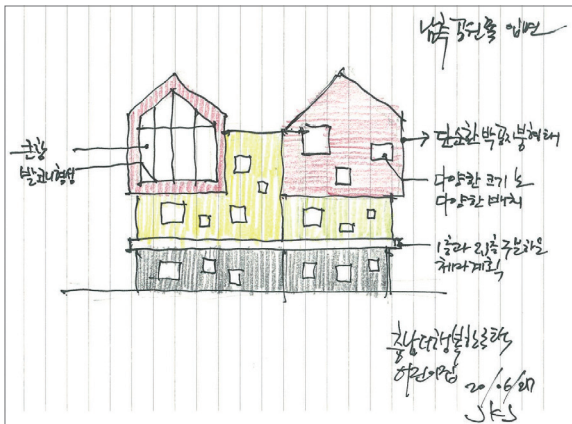 남측 공원쪽 입면
큰창
발코니형성
단순한 박공지붕형태
다양한 크기 및
다양한 배치
1층과 2,3층 구분하는
충남더행복한주택
어린이집
20/06/27
SKS